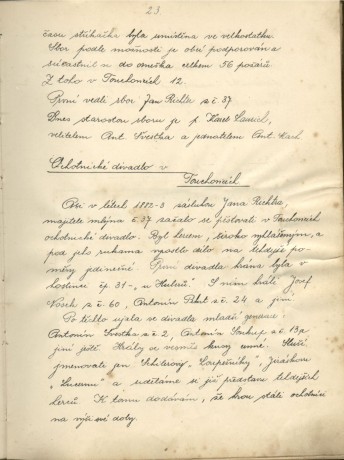 23
času stříkačka byla umístěna ve velkostatku.
Sbor podle možnosti je obcí podporován a
súčastnil se do dneška celkem 56 požárů.
Z toho v Touchonicích 12.
První vedl sbor Jan Richta z č 37
Dnes starostou sboru je p. Karel
velitelem Ant. Svestka a jednatelem Ant.
Ochotnické divadlo v
Touchonicích
Asi v letech 1882-3 zásluhou Jana Richty,
majitele mlýna č.37 začalo se pěstovati v Touchonicích
ochotnické divadlo. Byl hercem, široko vyhlášeným, a
pod jeho rukama vzrostlo dílo na tehdejší po-
měry jedinečné. První divadla hrána byla v
hostinci čp 31 - u S ním hráli Josef
z č. 60, Antonín č. 24 a jiní
Po těchto ujala se divadla mladší generace:
Antonín Svestka z č 2, Antonín z č 13a
jiní ještě. Hrály se vesměs kusy cenné. Stačí
jmenovati jen Schillerovy "Loupežníky", Jiráskovu
"Lucernu" a uděláme si již představu tehdejších
herců. K tomu dodávám, že hrou stáli ochotníci
na výši své doby.